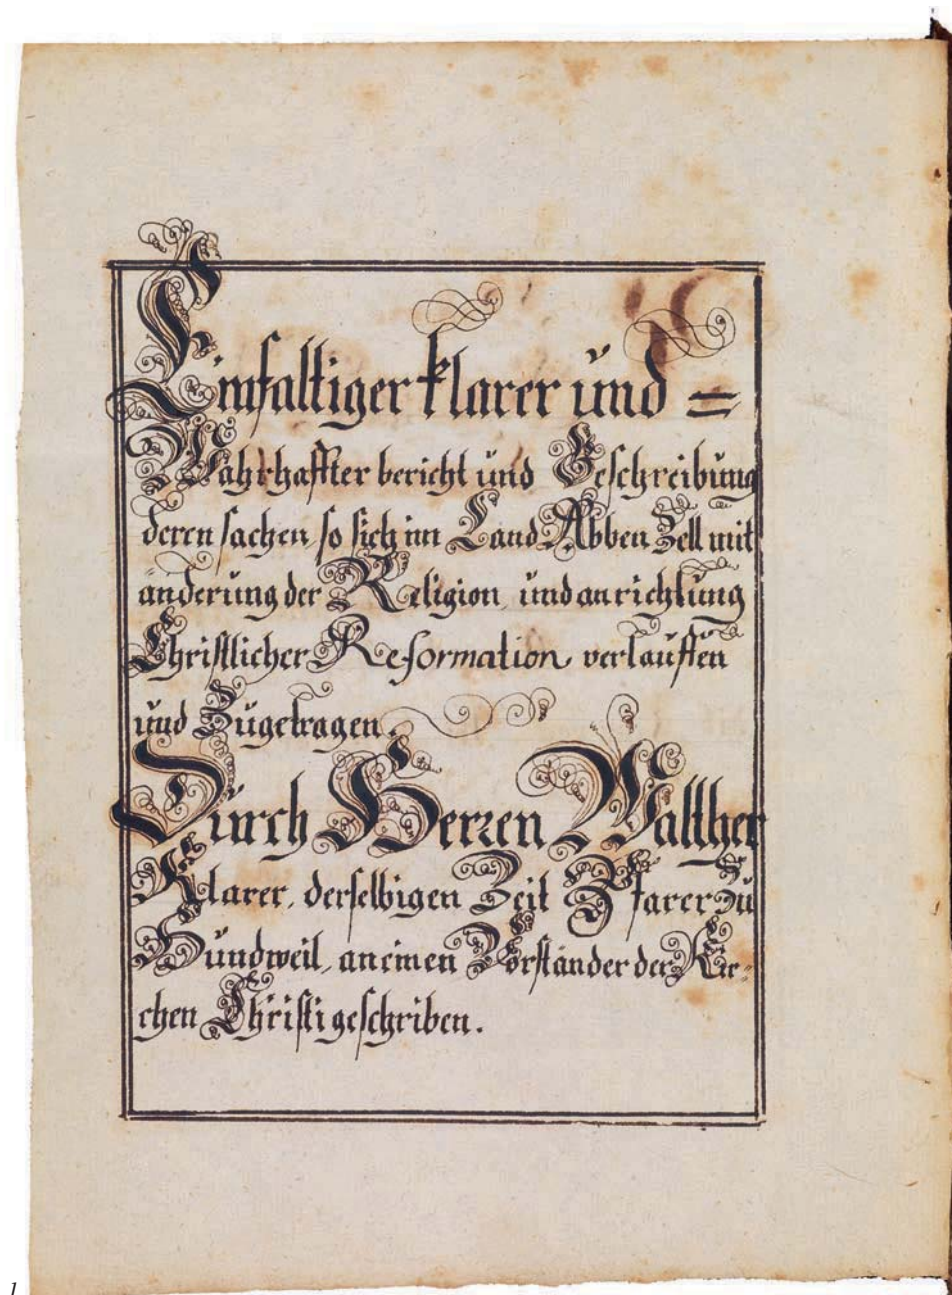 Einfaltiger klarer und =
Wahrhaffter bericht und Beschreibung
deren sachen, so sich im Land Abben Zell mit
änderung der Religion, und anrichtung
Christlicher Reformation verlauffen
und Zugetragen.
Durch Herren Walther
Klarer, derselbigen Zeit Pfarer Zu
Hundweil, an einen Vorständer der Kir=
chen Christi geschriben.
1